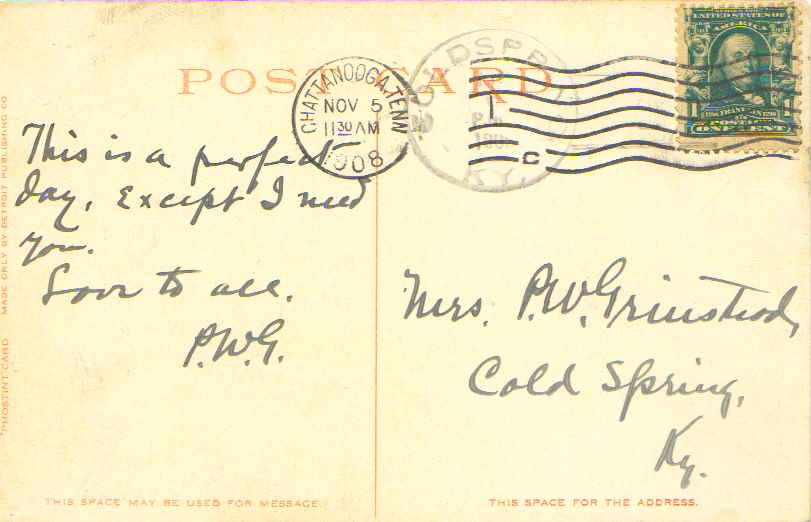 POST CARD
UNITED STATES OF
AMERICA
ONE CENT
CHATTANOOGA, TENN
NOV 5
11 30 AM
1908
C
KY.
This is a perfect
day. Except I need
you.
Love to all.
P.W.G.
Mrs. P.W. Grinstead,
Cold Spring,
Ky.
"PHOSTINT" CARD MADE ONLY BY DETROIT PUBLISHING CO
THIS SPACE MAY BE USED FOR MESSAGE.
THIS SPACE FOR THE ADDRESS.